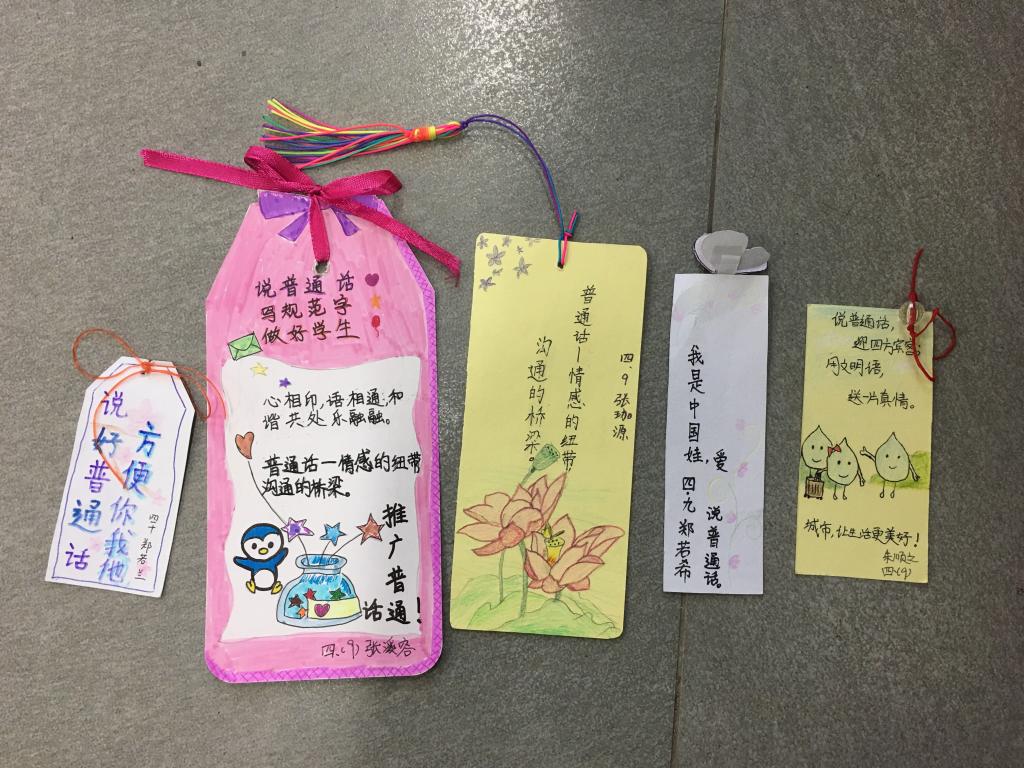 说好普通话
方便你、我、他
四十 郑若兰
说普通话
写规范字
做好学生
心相印,语相通,和
谐共处乐融融。
普通话—情感的纽带
沟通的桥梁。
推广普
话通!
四.(9) 张溪容
普通话—情感的纽带
沟通的桥梁。
四.9 张珈源
我是中国娃,爱
说普通话。
四.九 郑若希
说普通话,
迎四方宾客,
用文明语,
送一片真情。
城市,让生活更美好!
朱顺之
四.(9)